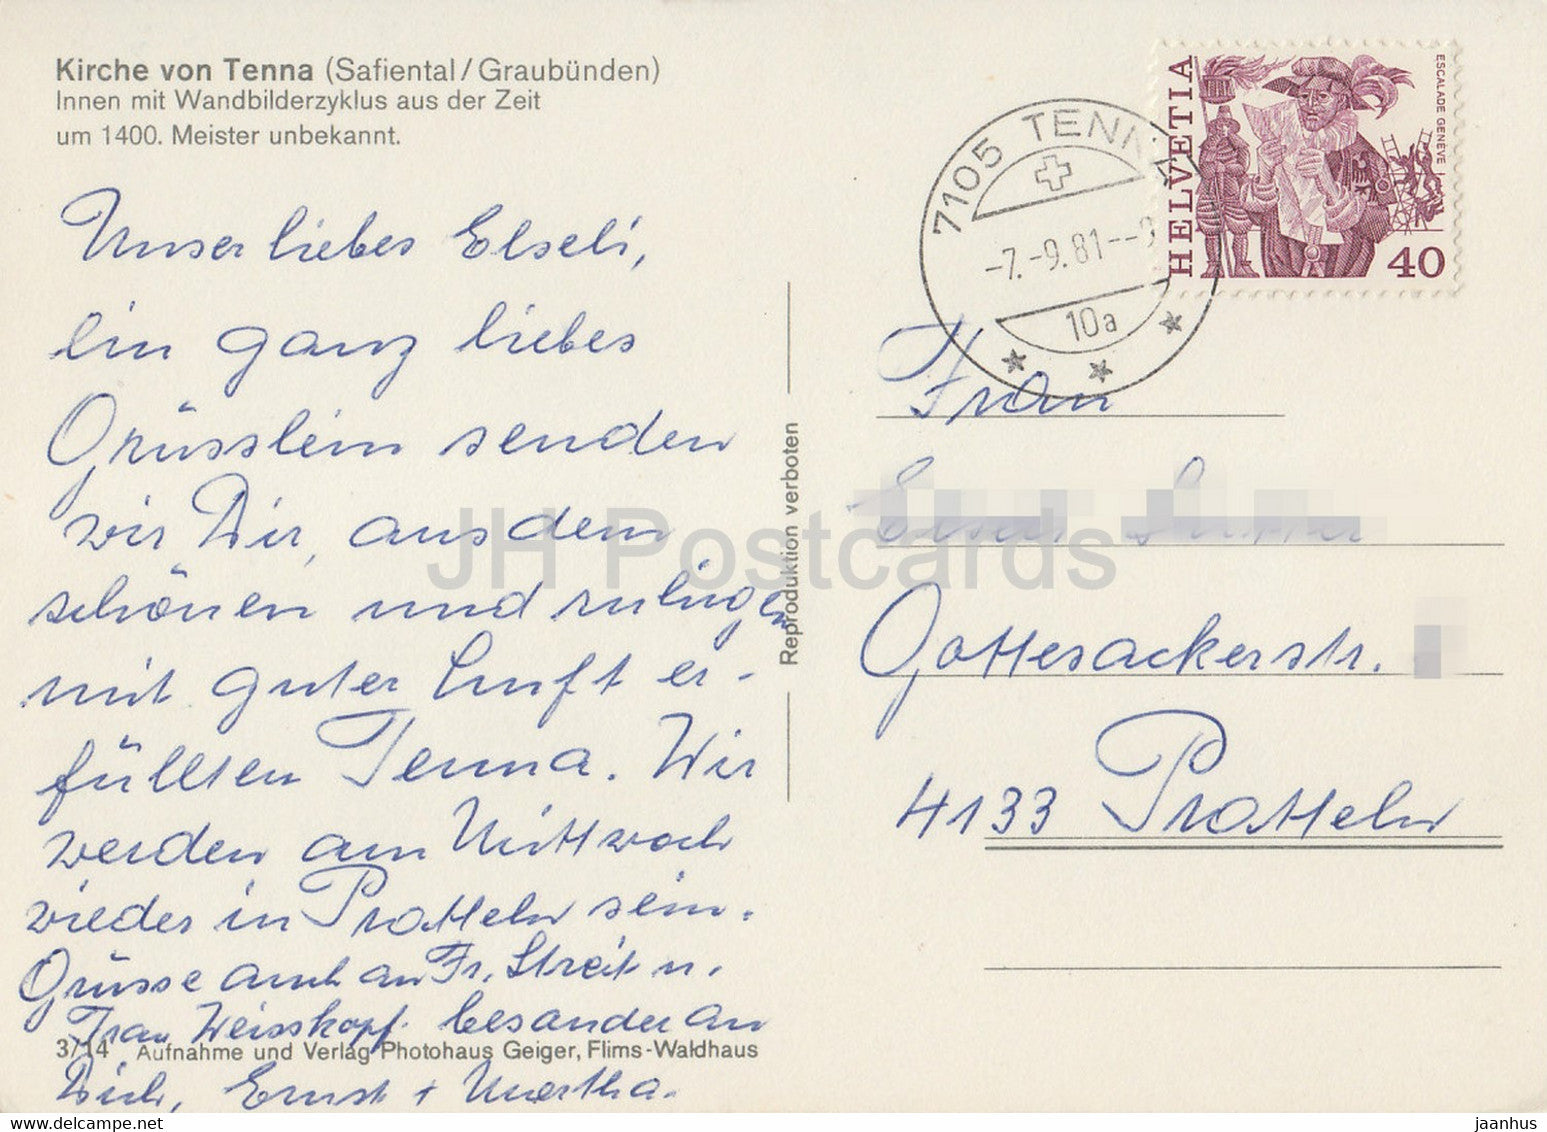 Kirche von Tenna (Safiental/Graubünden)
Innen mit Wandbilderzyklus aus der Zeit
um 1400. Meister unbekannt.
Unser liebes Elseli,
ein ganz liebes
Grüsslein senden
wir Dir, aus dem
schönen und ruhigen
mit guter Luft er-
füllten Tenna. Wir
werden am Mittwoch
wieder in Pratteln sein.
Grüsse auch an Fr. Streit u.
Frau Weisskopf. besonder an
Dich, Ernst + Martha.
3/14 Aufnahme und Verlag Photohaus Geiger, Flims-Waldhaus
Reproduktion verboten
7105 TENNA
-7.-9.81--9
10a
HELVETIA
ESCALADE GENÈVE
40
Frau
Gottesackerstr.
4133 Pratteln
JH Postcards
jaanhus
www.delcampe.net